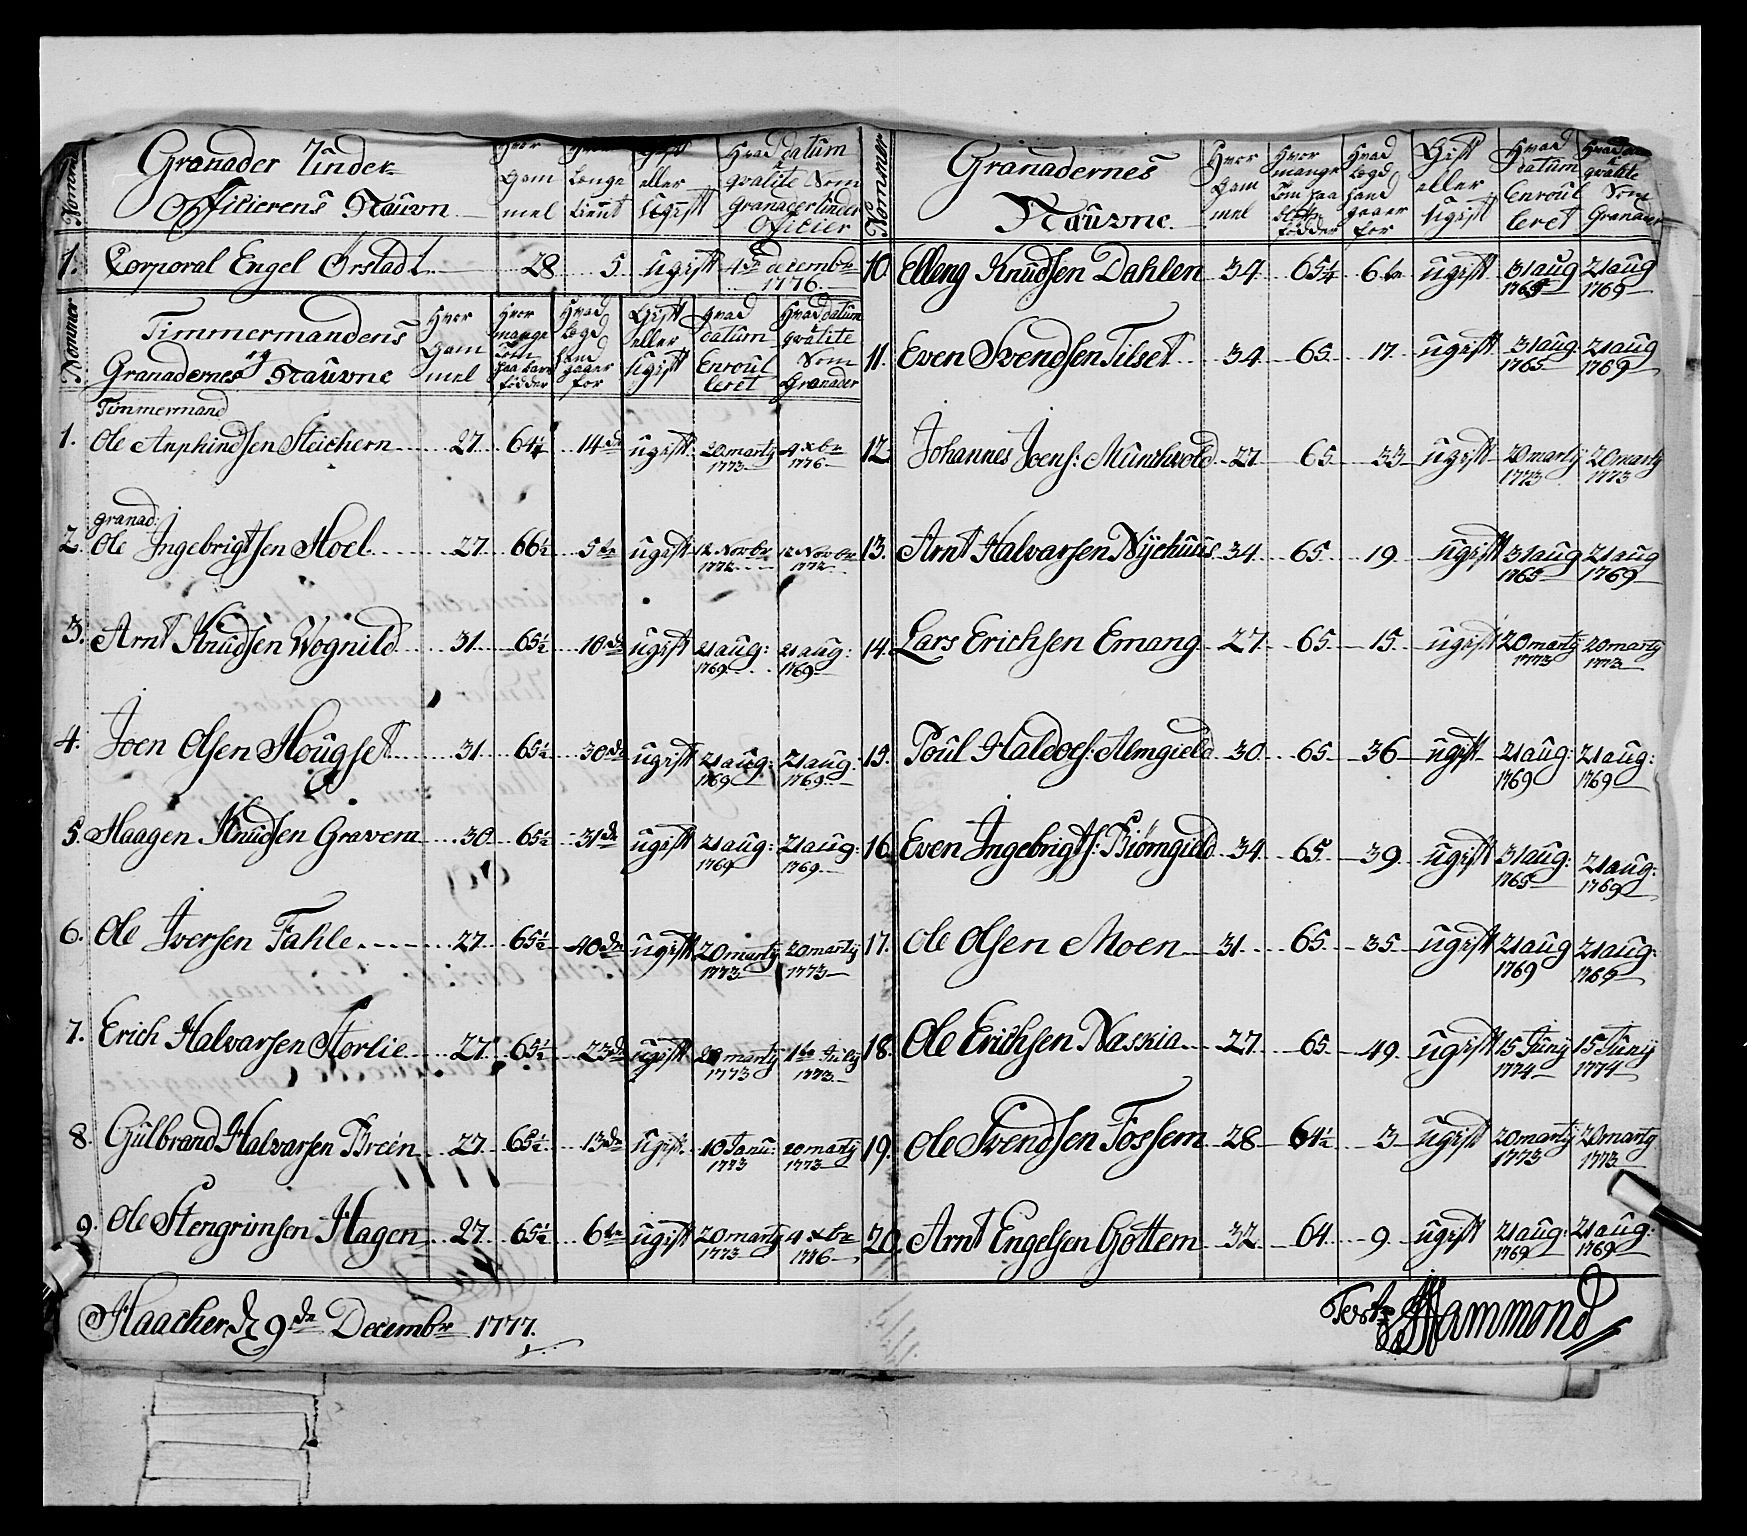 Nommer
Granader Under
Officierens Nauvn
Hvor Gam mel
Hvor Længe tient
Gift eller ugift
Hvad datum qvalite som granader under Oficier
1. Corporal Engel Ørstadt 28 5 ugift 4de decembr 1776
Nommer
Timmermandens
og
Granadernes Nauvne
Hvor Gam mel
Hvor mange Tom paa hans födder
Hvad Legd hand gaaer for
Gift eller ugift
Hvad datum Enroul leret
Hvad datum qvalite som Granader
Timmermand
1. Ole Anphindsen Steichern 27 64½ 14de ugift 20 marty 1773 4 xbr 1776
granad:
2. Ole Ingebrigtsen Hoel 27 66½ 5te ugift 12 Novbr 1772 12 Novbr 1772
3. Arnt Knudsen Wognild 31 65½ 10de ugift 21 aug: 1769 21 aug: 1769
4. Joen Olsen Hougset 31 65½ 30de ugift 21 aug: 1769 21 aug: 1769
5. Haagen Knudsen Gravem 30 65½ 31de ugift 21 aug: 1769 21 aug: 1769
6. Ole Iversen Fahle 27 65½ 40de ugift 20 marty 1773 20 marty 1773
7. Erich Halvarsen Storlie 27 65½ 23de ugift 20 marty 1773 1te July 1773
8. Gulbrand Halvarsen Breén 27 65½ 13de ugift 10 Janu: 1773 20 marty 1773
9. Ole Stengrimsen Hagen 27 65½ 6te ugift 20 marty 1773 4 xbr 1776
Nommer
Granadernes
Nauvne
Hvor Gam mel
Hvor mange Tom paa födder
Hvad Legd hand gaaer for
Gift eller ugift
Hvad datum Enroul leret
Hvad qvalite som Granader
10. Elleng Knudsen Dahlen 34 65¼ 6te ugift 31 aug 1765 21 aug 1769
11. Even Svendsen Tilset 34 65 17 ugift 31 aug 1765 21 aug 1769
12. Johannes Joens: Munkvold 27 65 33 ugift 20 marty 1773 20 marty 1773
13. Arnt Halvarsen Nychuus 34 65 19 ugift 31 aug 1765 21 aug 1769
14. Lars Erichsen Emang 27 65 15 ugift 20 marty 1773 20 marty 1773
15. Poul Haldors: Almgield 30 65 36 ugift 21 aug: 1769 21 aug: 1769
16. Even Ingebrigts: Biørngield 34 65 39 ugift 31 aug: 1765 21 aug: 1769
17. Ole Olsen Moen 31 65 35 ugift 21 aug 1769 21 aug: 1769
18. Ole Erichsen Naskia 27 65 49 ugift 15 Juny 1774 15 Juny 1774
19. Ole Svendsen Fossem 28 64½ 3 ugift 20 marty 1773 20 marty 1773
20. Arnt Engelsen Gottem 32 64 9 ugift 21 aug: 1769 21 aug: 1769
Haacher d 9de Decembr 1777.
Hammond